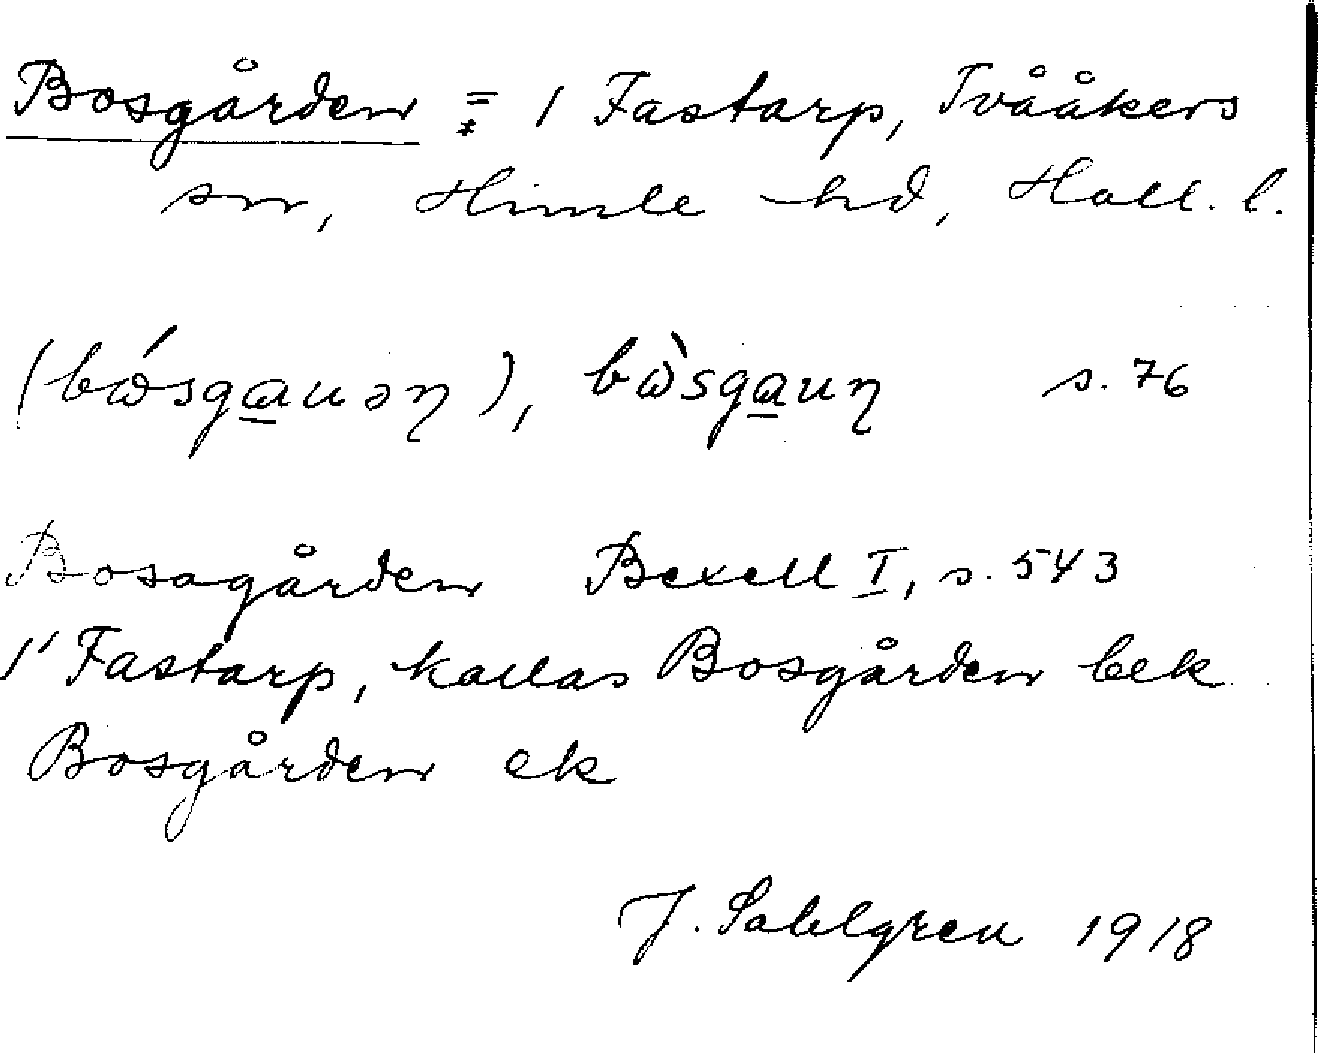 Bosgården = * 1 Fastarp, Tvååkers
sn, Himle hd, Hall. l.
(bǿsga̲uəŋ), bὼsga̲uŋ s. 76
Bosagården Bexell I, s. 543
1' Fastarp, kallas Bosgården bek
Bosgården ek
J. Sahlgren 1918